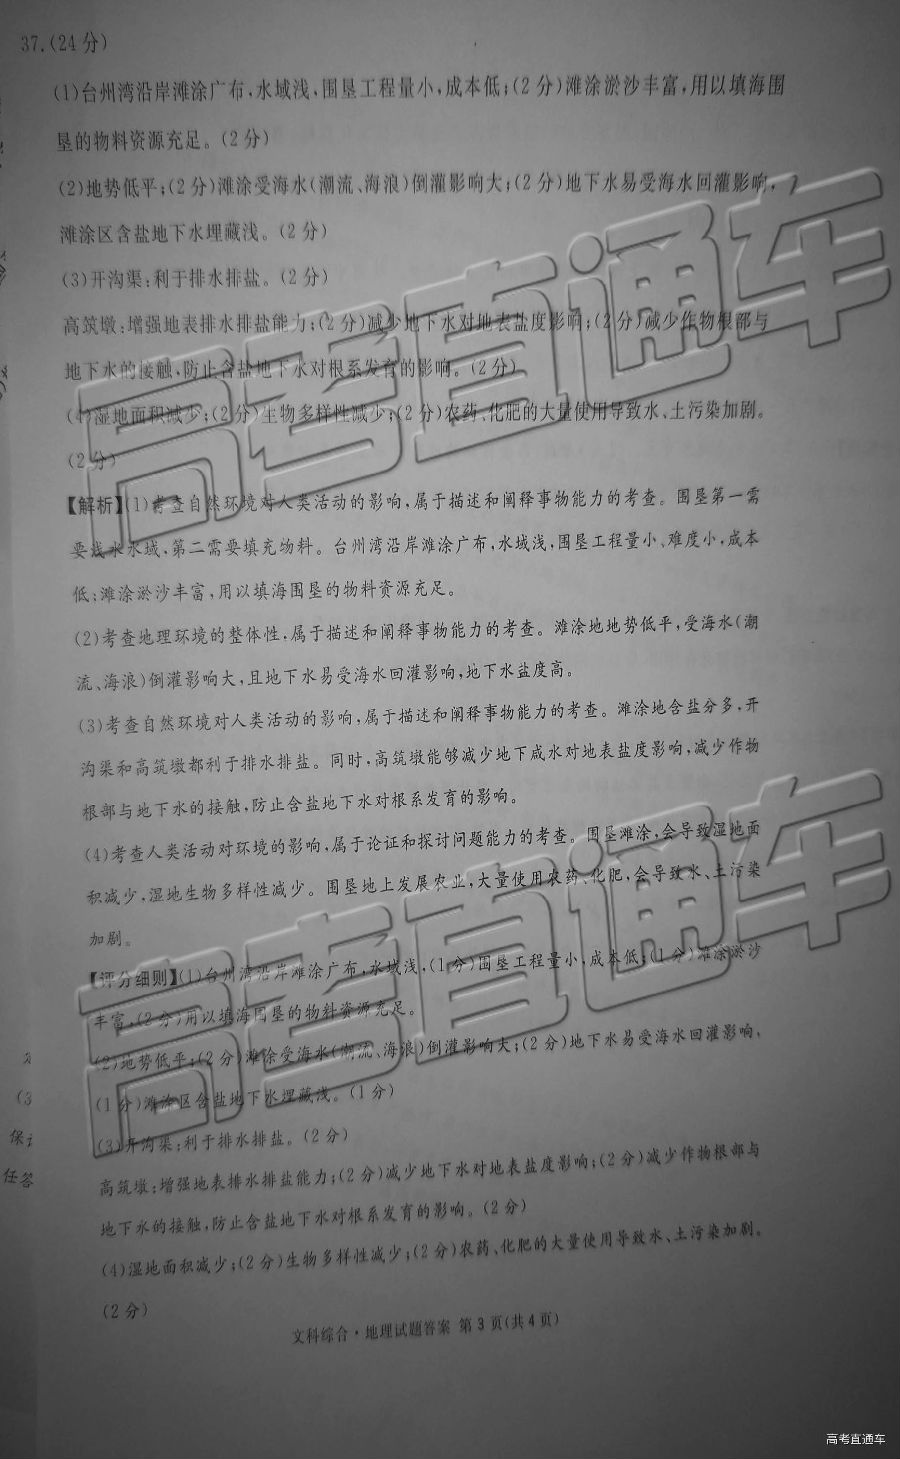 37.(24分)
(1)台州湾沿岸滩涂广布,水域浅,围垦工程量小,成本低;(2分)滩涂淤沙丰富,用以填海围
垦的物料资源充足。(2分)
(2)地势低平;(2分)滩涂受海水(潮流、海浪)倒灌影响大;(2分)地下水易受海水回灌影响,
滩涂区含盐地下水埋藏浅。(2分)
(3)开沟渠:利于排水排盐。(2分)
高筑墩:增强地表排水排盐能力;(2分)减少地下水对地表盐度影响;(2分)减少作物根部与
地下水的接触,防止含盐地下水对根系发育的影响。(2分)
(4)湿地面积减少;(2分)生物多样性减少;(2分)农药、化肥的大量使用导致水、土污染加剧。
(2分)
【解析】(1)考查自然环境对人类活动的影响,属于描述和阐释事物能力的考查。围垦第一需
要浅水水域,第二需要填充物料。台州湾沿岸滩涂广布,水域浅,围垦工程量小、难度小,成本
低;滩涂淤沙丰富,用以填海围垦的物料资源充足。
(2)考查地理环境的整体性,属于描述和阐释事物能力的考查。滩涂地地势低平,受海水(潮
流、海浪)倒灌影响大,且地下水易受海水回灌影响,地下水盐度高。
(3)考查自然环境对人类活动的影响,属于描述和阐释事物能力的考查。滩涂地含盐分多,开
沟渠和高筑墩都利于排水排盐。同时,高筑墩能够减少地下咸水对地表盐度影响,减少作物
根部与地下水的接触,防止含盐地下水对根系发育的影响。
(4)考查人类活动对环境的影响,属于论证和探讨问题能力的考查。围垦滩涂,会导致湿地面
积减少,湿地生物多样性减少。围垦地上发展农业,大量使用农药、化肥,会导致水、土污染
加剧。
【评分细则】(1)台州湾沿岸滩涂广布,水域浅,(1分)围垦工程量小,成本低;(1分)滩涂淤沙
丰富,(2分)用以填海围垦的物料资源充足。
(2)地势低平;(2分)滩涂受海水(潮流、海浪)倒灌影响大;(2分)地下水易受海水回灌影响,
(1分)滩涂区含盐地下水埋藏浅。(1分)
(3)开沟渠:利于排水排盐。(2分)
高筑墩:增强地表排水排盐能力;(2分)减少地下水对地表盐度影响;(2分)减少作物根部与
地下水的接触,防止含盐地下水对根系发育的影响。(2分)
(4)湿地面积减少;(2分)生物多样性减少;(2分)农药、化肥的大量使用导致水、土污染加剧。
(2分)
文科综合·地理试题答案 第3页(共4页)
(3
保
任答
高考直通车
高考直通车
高考直通车